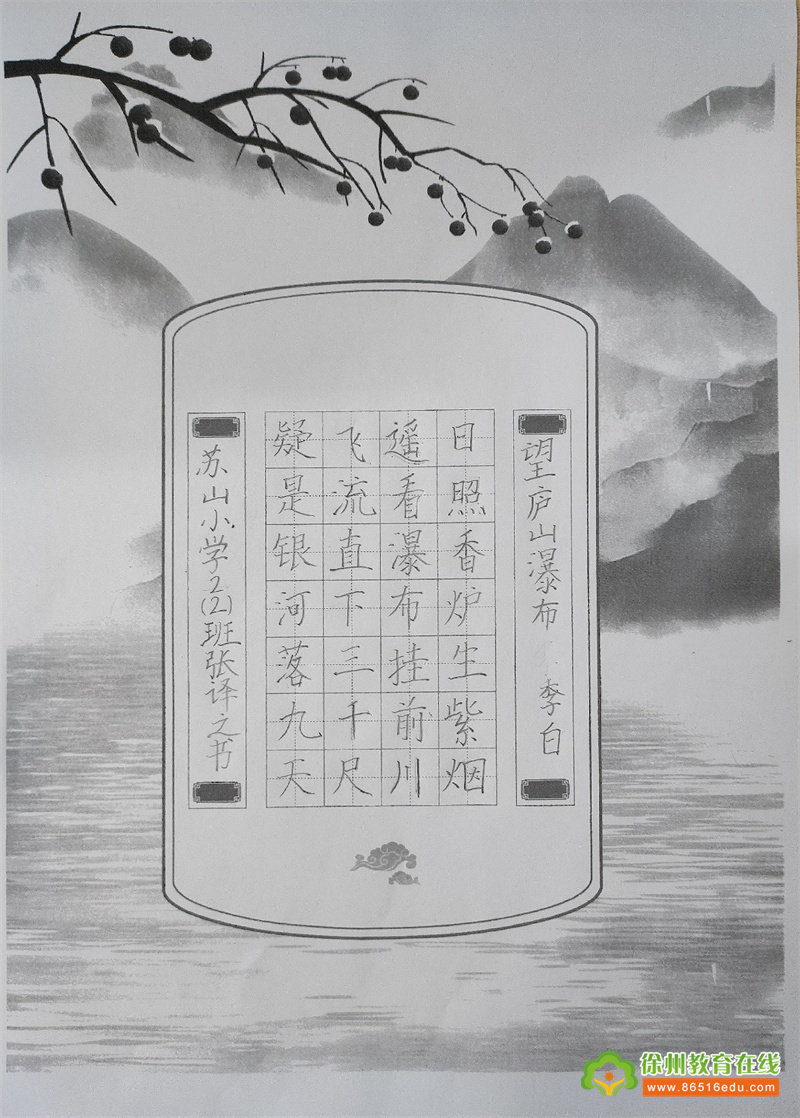 望庐山瀑布 李白
日照香炉生紫烟
遥看瀑布挂前川
飞流直下三千尺
疑是银河落九天
苏山小学2(2)班张译之书
徐州教育在线
www.86516edu.com